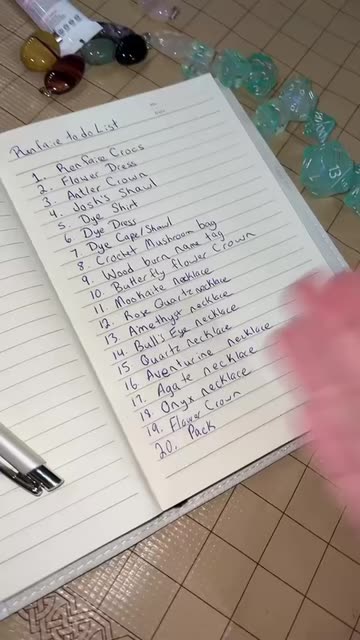 Renfaire to do List
1. Renfaire Crocs
2. Flower Dress
3. Antler Crown
4. Josh's Shawl
5. Dye Shirt
6. Dye Dress
7. Dye Cape/Shawl
8. Crochet Mushroom bag
9. Wood burn name tag
10. Butterfly flower Crown
11. Mookaite necklace
12. Rose Quartz necklace
13. Amethyst necklace
14. Bull's Eye necklace
15. Quartz necklace
16. Aventurine necklace
17. Agate necklace
18. Onyx necklace
19. Flower Crown
20. Pack
13